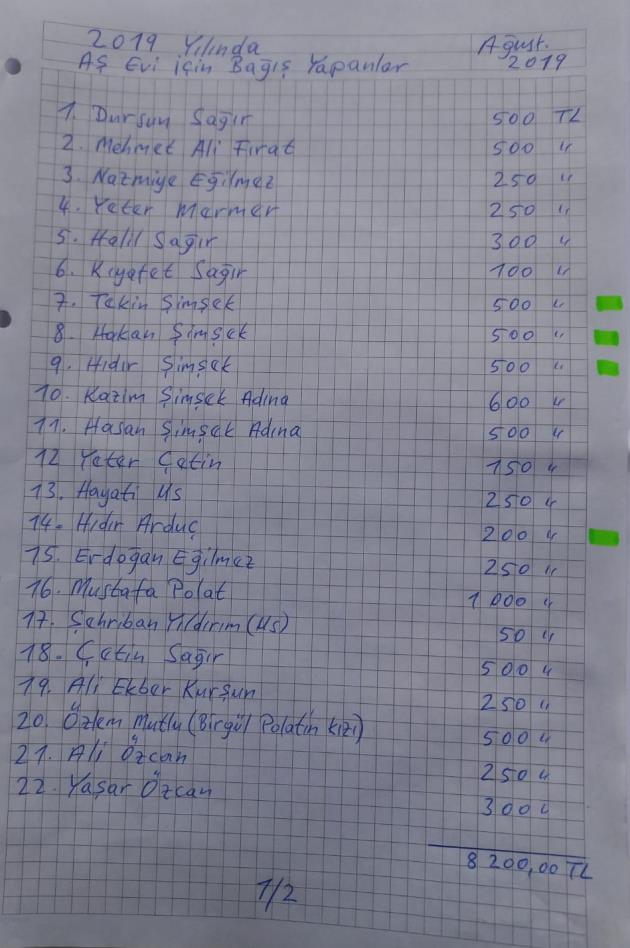 2019 Yılında Ağust.
Aş Evi için Bağış Yapanlar 2019
1. Dursun Sağır 500 TL
2. Mehmet Ali Fırat 500 "
3. Nazmiye Eğilmez 250 "
4. Yeter Mermer 250 "
5. Halil Sağır 300 "
6. Kıyafet Sağır 100 "
7. Tekin Şimşek 500 "
8. Hakan Şimşek 500 "
9. Hıdır Şimşek 500 "
10. Kazim Şimşek Adına 600 "
11. Hasan Şimşek Adına 500 "
12 Yeter Çetin 150 "
13. Hayati Us 250 "
14. Hıdır Arduç 200 "
15. Erdoğan Eğilmez 250 "
16. Mustafa Polat 1 000 "
17. Şehriban Yıldırım (Us) 50 "
18. Çetin Sağır 500 "
19. Ali Ekber Kurşun 250 "
20. Özlem Mutlu (Birgül Polatın kızı) 500 "
21. Ali Özcan 250 "
22. Yaşar Özcan 300 "
8 200,00 TL
1/2